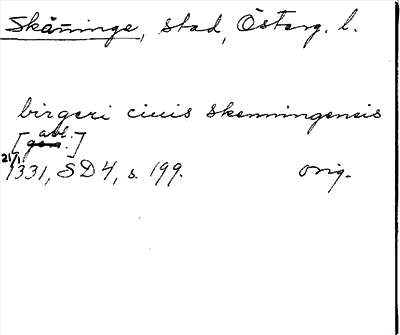 Skänninge, stad, Österg. l.
birgeri ciuis skenningensis
[gen. abl.]
21/1 1331, SD 4, s. 199. orig.